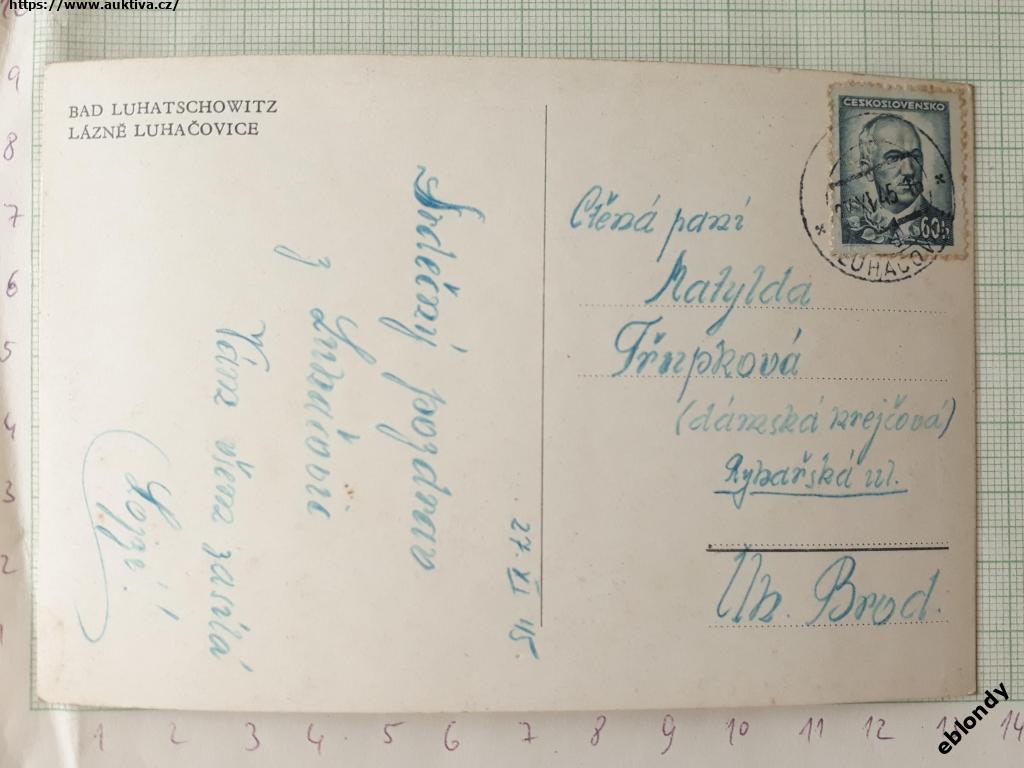 https://www.auktiva.cz/
BAD LUHATSCHOWITZ
LÁZNĚ LUHAČOVICE
27. XI 45.
Srdečný pozdrav
z
Luhačovic
Vám všem zasílá
ČESKOSLOVENSKO
60h
XI.45
LUHAČOV
Ctěná paní
Matylda
Trňpková
(dámská krejčová)
Rybářská ul.
Uh. Brod.
9
8
7
6
5
4
3
2
1
1 2 3 4 5 6 7 8 9 10 11 12 13 14
eblondy